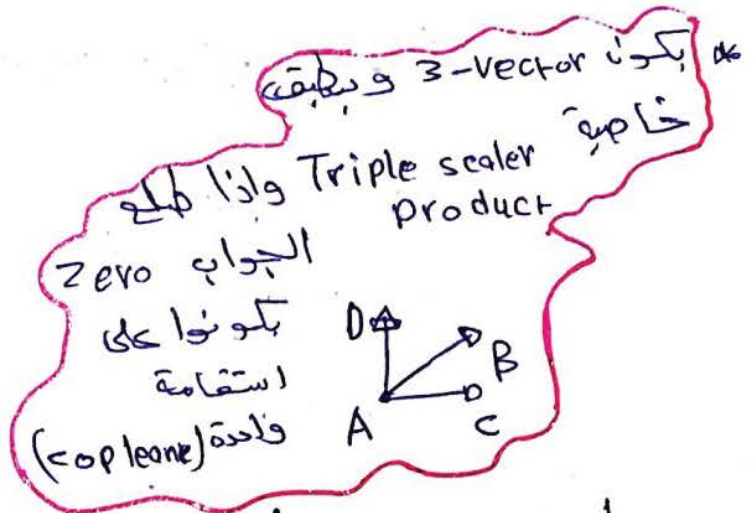 * بكون 3-vector وبطبق
خاصية
Triple scaler واذا طلع
product
الجواب Zero
بكونوا على
استقامة
واحدة (copleane)
D
B
A C